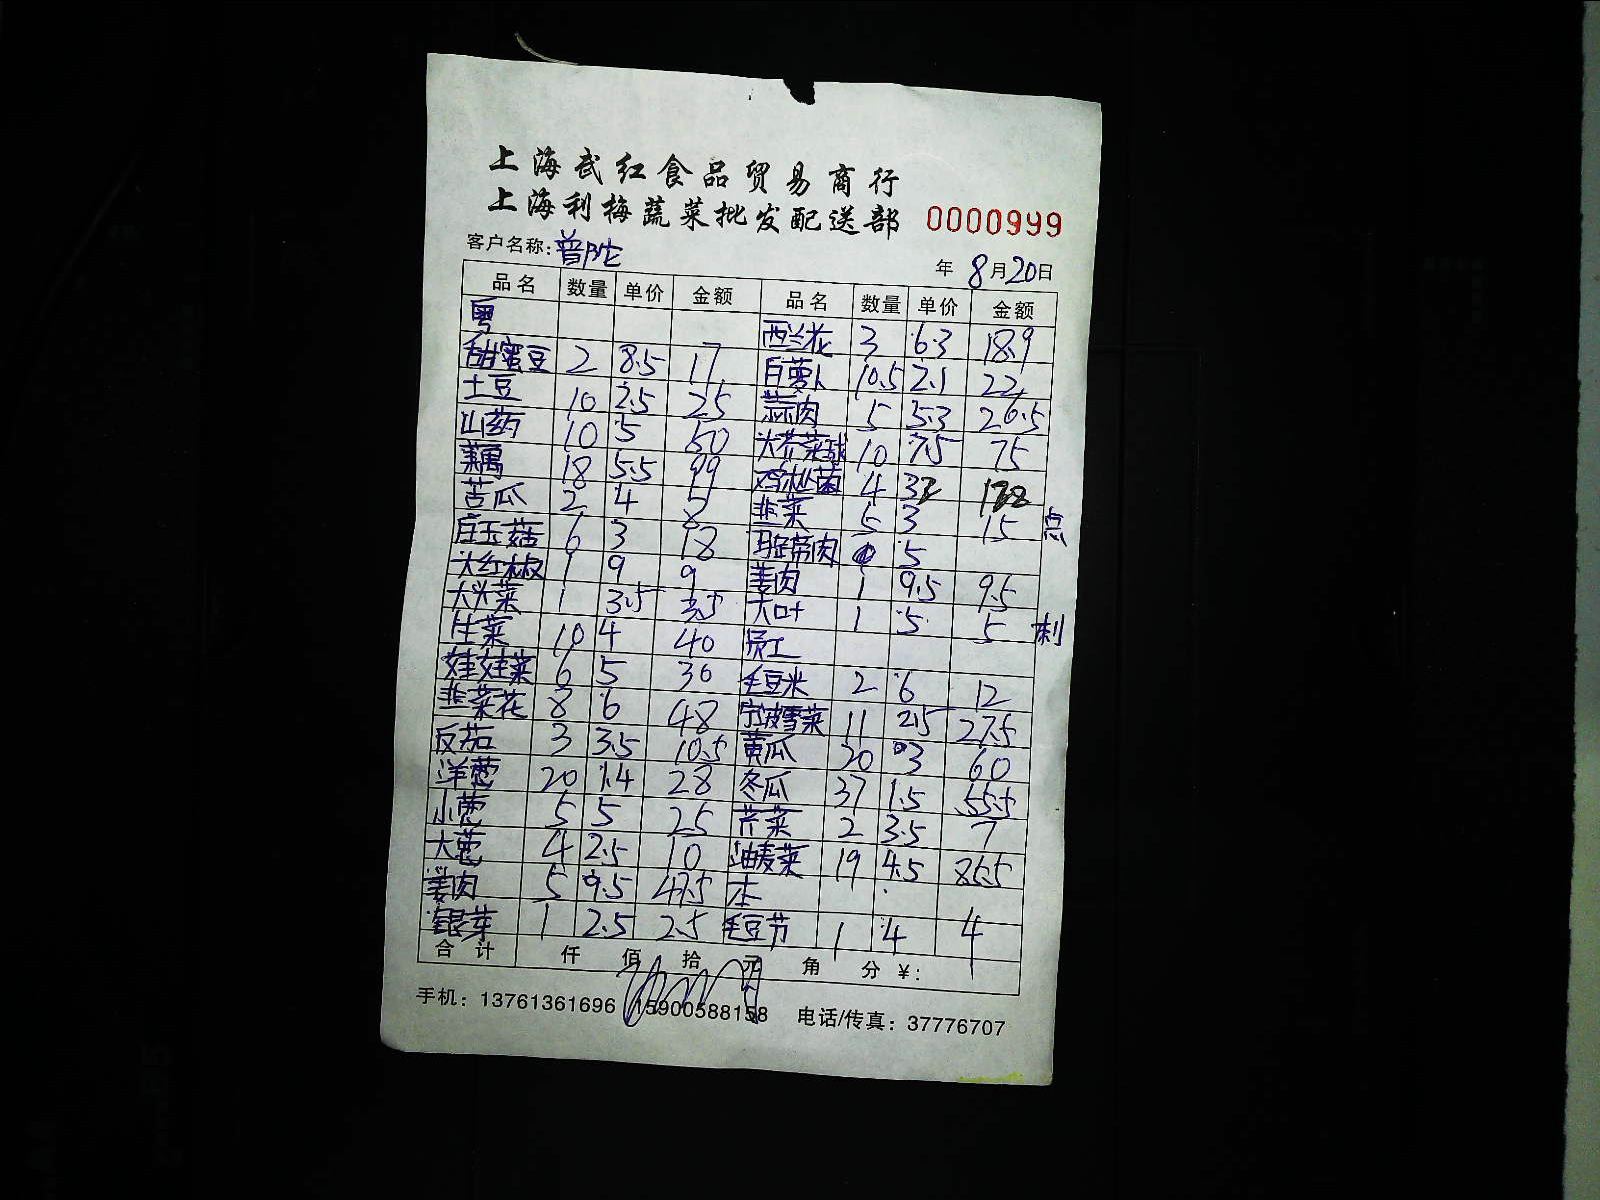 上海武红食品贸易商行
上海利梅蔬菜批发配送部 0000999
客户名称: 普陀 年 8月20日
品名 数量 单价 金额 品名 数量 单价 金额
粤 西兰花 3 6.3 18.9
甜蜜豆 2 8.5 17 白萝卜 10.5 2.1 22
土豆 10 2.5 25 蒜肉 5 5.3 26.5
山药 10 5 50 大芥菜球 10 7.5 75
藕 18 5.5 99 鸡枞菌 4 32 128
苦瓜 2 4 8 韭菜 5 3 15 点
白玉菇 6 3 18 马蹄肉 5
大红椒 1 9 9 姜肉 1 9.5 9.5
大兴菜 1 3.5 3.5 大叶 1 5 5 刺
生菜 10 4 40 员工
娃娃菜 6 5 30 毛豆米 2 6 12
韭菜花 8 6 48 宁波雪菜 11 2.5 27.5
反茄 3 3.5 10.5 黄瓜 20 3 60
洋葱 20 1.4 28 冬瓜 37 1.5 55.5
小葱 5 5 25 芹菜 2 3.5 7
大葱 4 2.5 10 油麦菜 19 4.5 85.5
姜肉 5 9.5 47.5 本
银芽 1 2.5 2.5 毛豆节 1 4 4
合计 仟 佰 拾 元 角 分 ¥:
手机: 13761361696 15900588158 电话/传真: 37776707